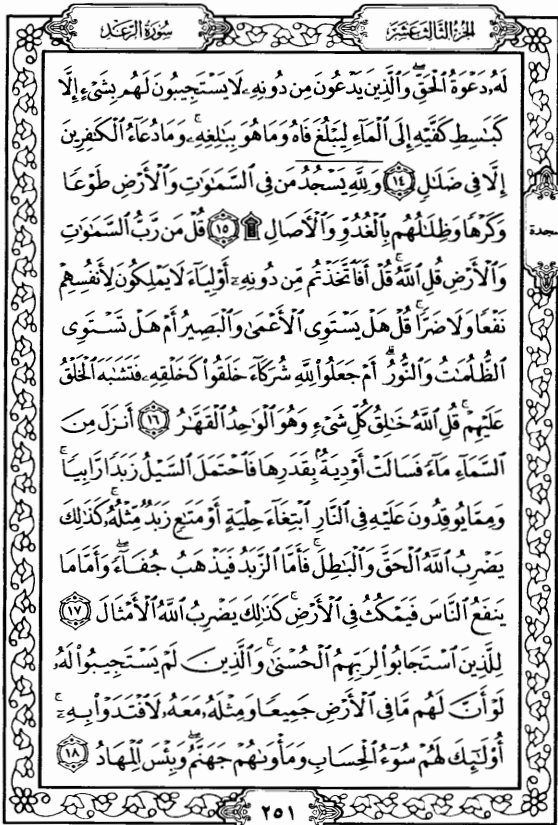 سُورَةُ الرَّعۡدِ
الجُزْءُ الثَّالِثَ عَشَرَ
لَهُۥ دَعۡوَةُ ٱلۡحَقِّۖ وَٱلَّذِينَ يَدۡعُونَ مِن دُونِهِۦ لَا يَسۡتَجِيبُونَ لَهُم بِشَيۡءٍ إِلَّا
كَبَٰسِطِ كَفَّيۡهِ إِلَى ٱلۡمَآءِ لِيَبۡلُغَ فَاهُ وَمَا هُوَ بِبَٰلِغِهِۦۚ وَمَا دُعَآءُ ٱلۡكَٰفِرِينَ
إِلَّا فِي ضَلَٰلٖ ١٤ وَلِلَّهِۤ يَسۡجُدُۤ مَن فِي ٱلسَّمَٰوَٰتِ وَٱلۡأَرۡضِ طَوۡعٗا
وَكَرۡهٗا وَظِلَٰلُهُم بِٱلۡغُدُوِّ وَٱلۡأٓصَالِ۩ ١٥ قُلۡ مَن رَّبُّ ٱلسَّمَٰوَٰتِ
سجدة
وَٱلۡأَرۡضِ قُلِ ٱللَّهُۚ قُلۡ أَفَٱتَّخَذۡتُم مِّن دُونِهِۦٓ أَوۡلِيَآءَ لَا يَمۡلِكُونَ لِأَنفُسِهِمۡ
نَفۡعٗا وَلَا ضَرّٗاۚ قُلۡ هَلۡ يَسۡتَوِي ٱلۡأَعۡمَىٰ وَٱلۡبَصِيرُ أَمۡ هَلۡ تَسۡتَوِي
ٱلظُّلُمَٰتُ وَٱلنُّورُۗ أَمۡ جَعَلُواْ لِلَّهِ شُرَكَآءَ خَلَقُواْ كَخَلۡقِهِۦ فَتَشَٰبَهَ ٱلۡخَلۡقُ
عَلَيۡهِمۡۚ قُلِ ٱللَّهُ خَٰلِقُ كُلِّ شَيۡءٖ وَهُوَ ٱلۡوَٰحِدُ ٱلۡقَهَّٰرُ ١٦ أَنزَلَ مِنَ
ٱلسَّمَآءِ مَآءٗ فَسَالَتۡ أَوۡدِيَةُۢ بِقَدَرِهَا فَٱحۡتَمَلَ ٱلسَّيۡلُ زَبَدٗا رَّابِيٗاۚ
وَمِمَّا يُوقِدُونَ عَلَيۡهِ فِي ٱلنَّارِ ٱبۡتِغَآءَ حِلۡيَةٍ أَوۡ مَتَٰعٖ زَبَدٞ مِّثۡلُهُۥۚ كَذَٰلِكَ
يَضۡرِبُ ٱللَّهُ ٱلۡحَقَّ وَٱلۡبَٰطِلَۚ فَأَمَّا ٱلزَّبَدُ فَيَذۡهَبُ جُفَآءٗۖ وَأَمَّا مَا
يَنفَعُ ٱلنَّاسَ فَيَمۡكُثُ فِي ٱلۡأَرۡضِۚ كَذَٰلِكَ يَضۡرِبُ ٱللَّهُ ٱلۡأَمۡثَالَ ١٧
لِلَّذِينَ ٱسۡتَجَابُواْ لِرَبِّهِمُ ٱلۡحُسۡنَىٰۚ وَٱلَّذِينَ لَمۡ يَسۡتَجِيبُواْ لَهُۥ
لَوۡ أَنَّ لَهُم مَّا فِي ٱلۡأَرۡضِ جَمِيعٗا وَمِثۡلَهُۥ مَعَهُۥ لَٱفۡتَدَوۡاْ بِهِۦٓۚ
أُوْلَٰٓئِكَ لَهُمۡ سُوٓءُ ٱلۡحِسَابِ وَمَأۡوَىٰهُمۡ جَهَنَّمُۖ وَبِئۡسَ ٱلۡمِهَادُ ١٨
٢٥١